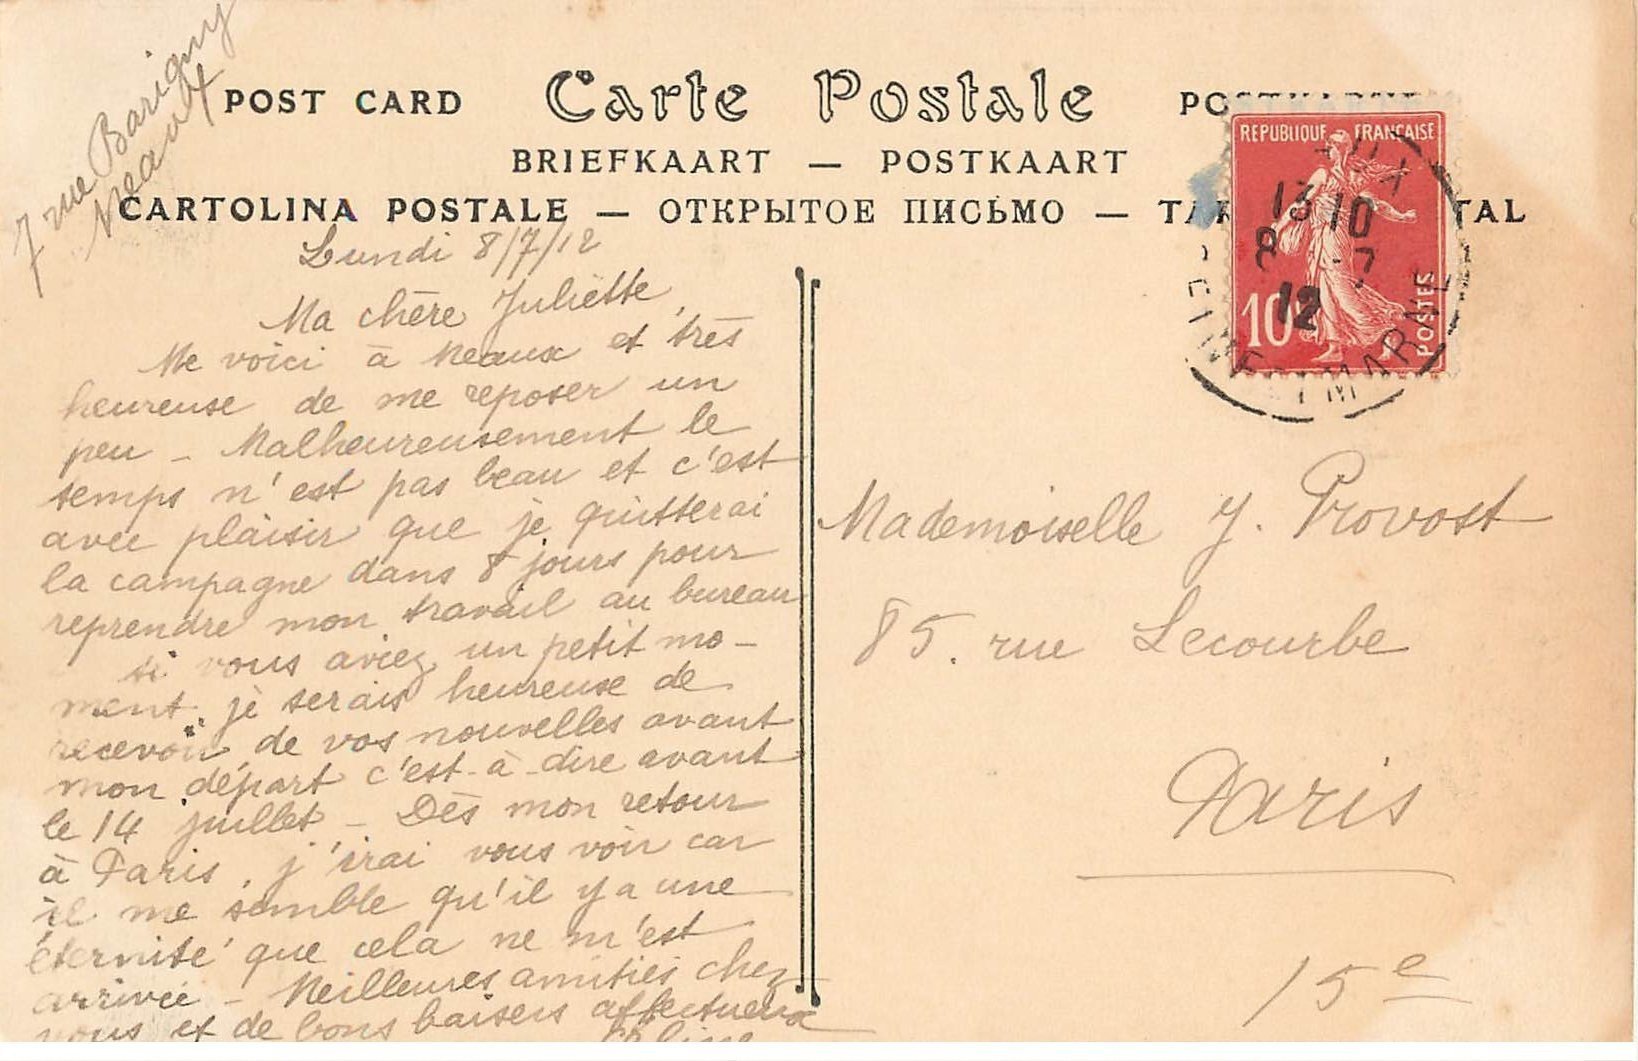 7 rue Barigny
Meaux
POST CARD Carte Postale
BRIEFKAART — POSTKAART
CARTOLINA POSTALE — ОТКРЫТОЕ ПИСЬМО —
REPUBLIQUE FRANÇAISE
10c
POSTES
13 10
8 -7
12
SEINE ET MARNE
Lundi 8/7/12
Ma chère Juliette,
Me voici à Meaux et très
heureuse de me reposer un
peu - Malheureusement le
temps n'est pas beau et c'est
avec plaisir que je quitterai
la campagne dans 8 jours pour
reprendre mon travail au bureau
si vous aviez un petit mo-
ment, je serais heureuse de
recevoir de vos nouvelles avant
mon départ c'est-à-dire avant
le 14 juillet - Dès mon retour
à Paris, j'irai vous voir car
il me semble qu'il y a une
éternité que cela ne m'est
arrivée - Meilleures amitiés chez
vous et de bons baisers affectueux
Mademoiselle J. Provost
85. rue Lecourbe
Paris
15e